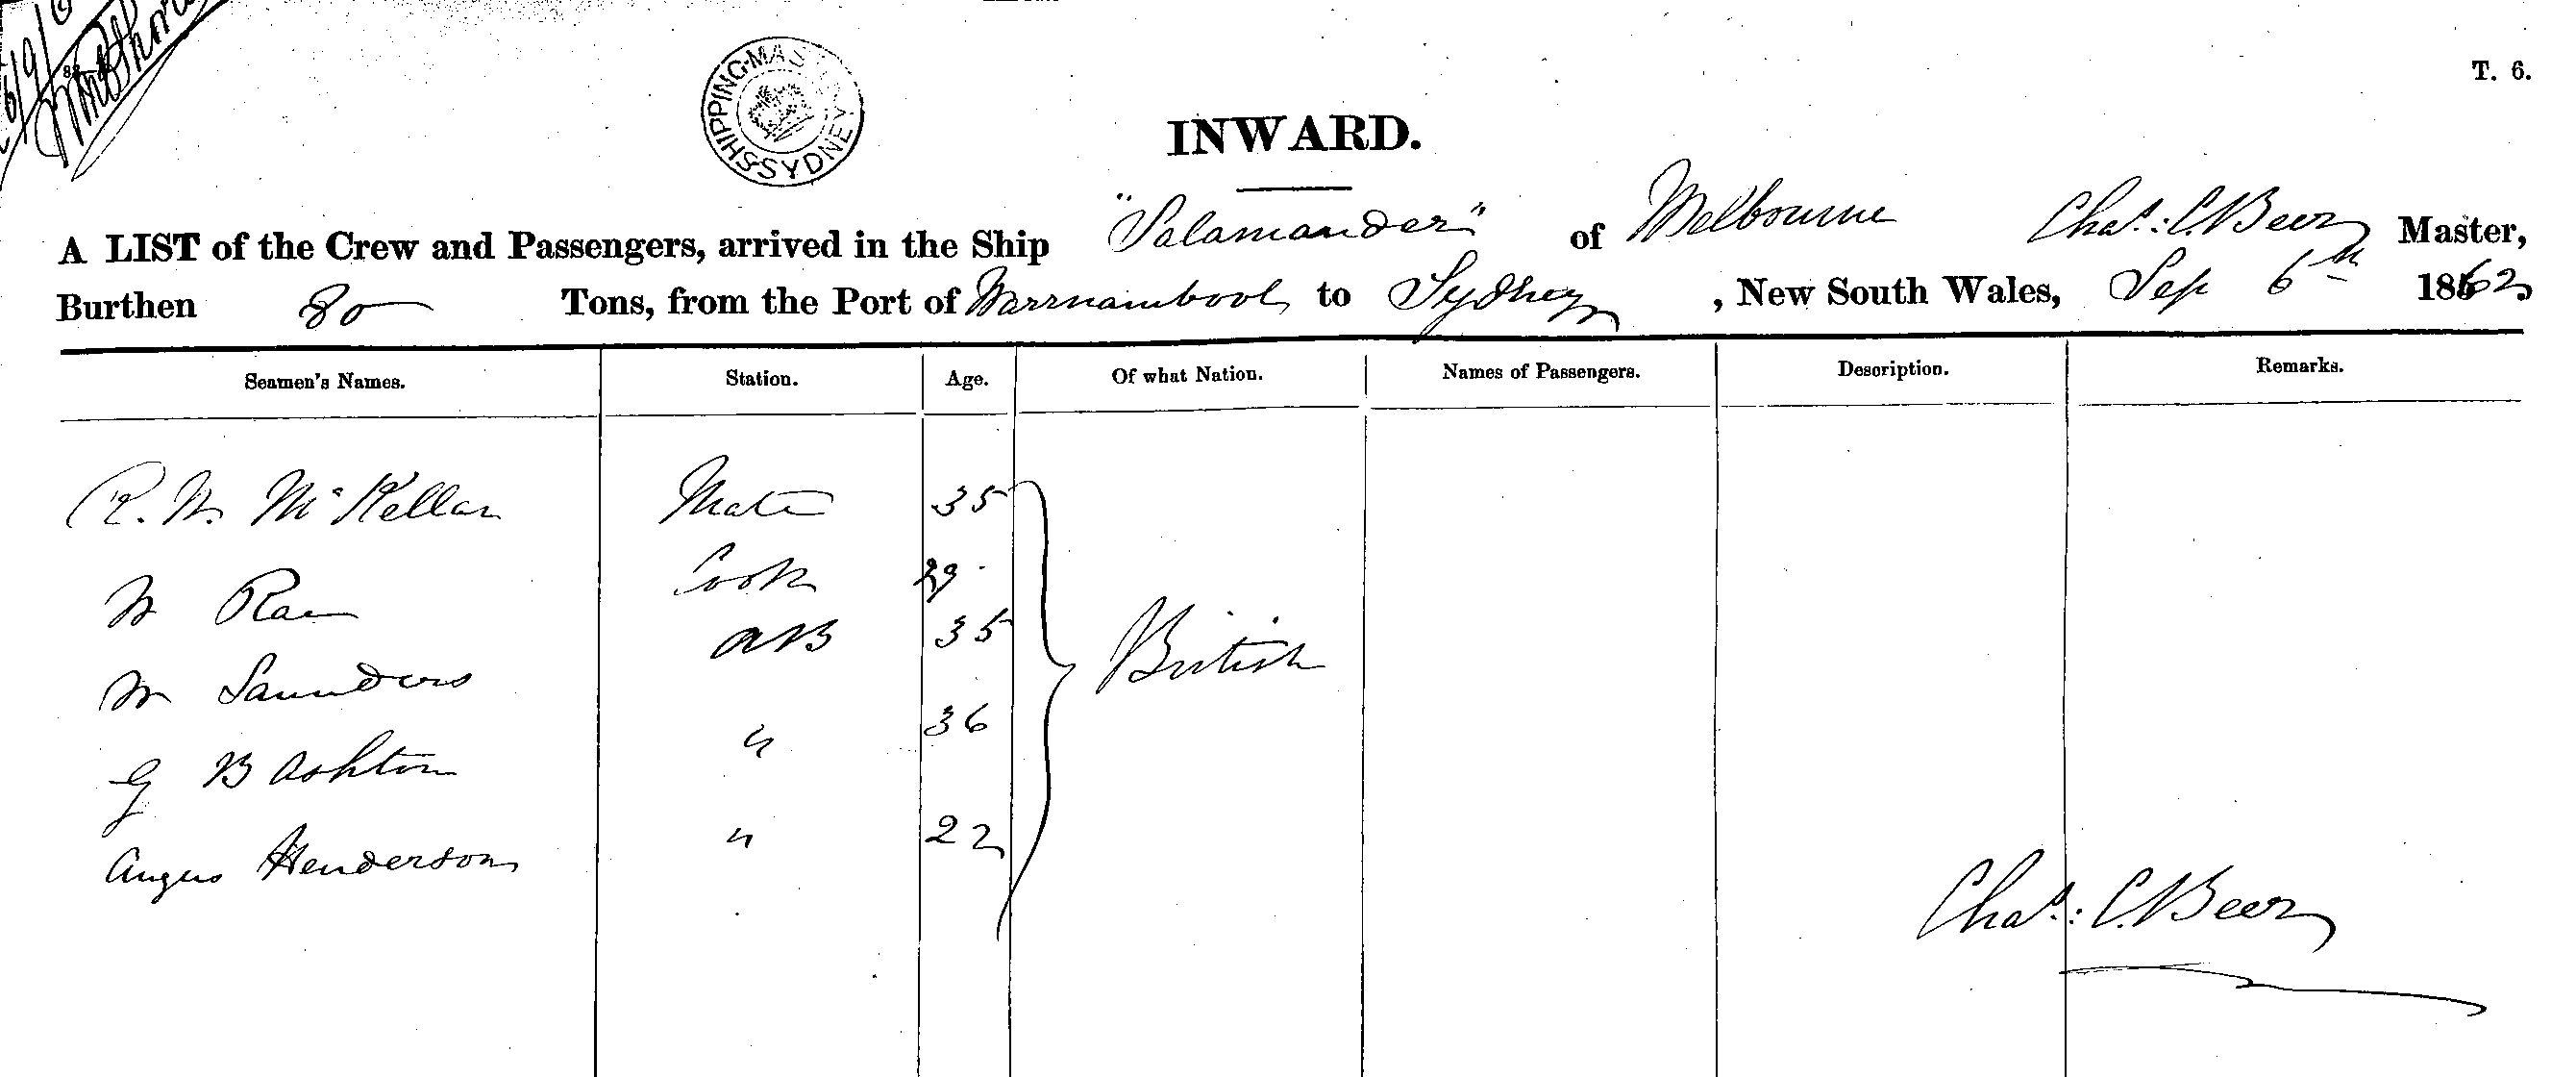 SHIPPING-MASTER SYDNEY
T. 6.
INWARD.
A LIST of the Crew and Passengers, arrived in the Ship "Salamander" of Melbourne Chas.: C. Beer Master,
Burthen 80 Tons, from the Port of Warrnambool to Sydney, New South Wales, Sep 6th 1862
Seamen's Names. Station. Age. Of what Nation. Names of Passengers. Description. Remarks.
R. W. McKellar Mate 35
W Rae Cook 29
W Saunders AB 35 British
G B Ashton " 36
Angus Henderson " 22
Chas.: C. Beer